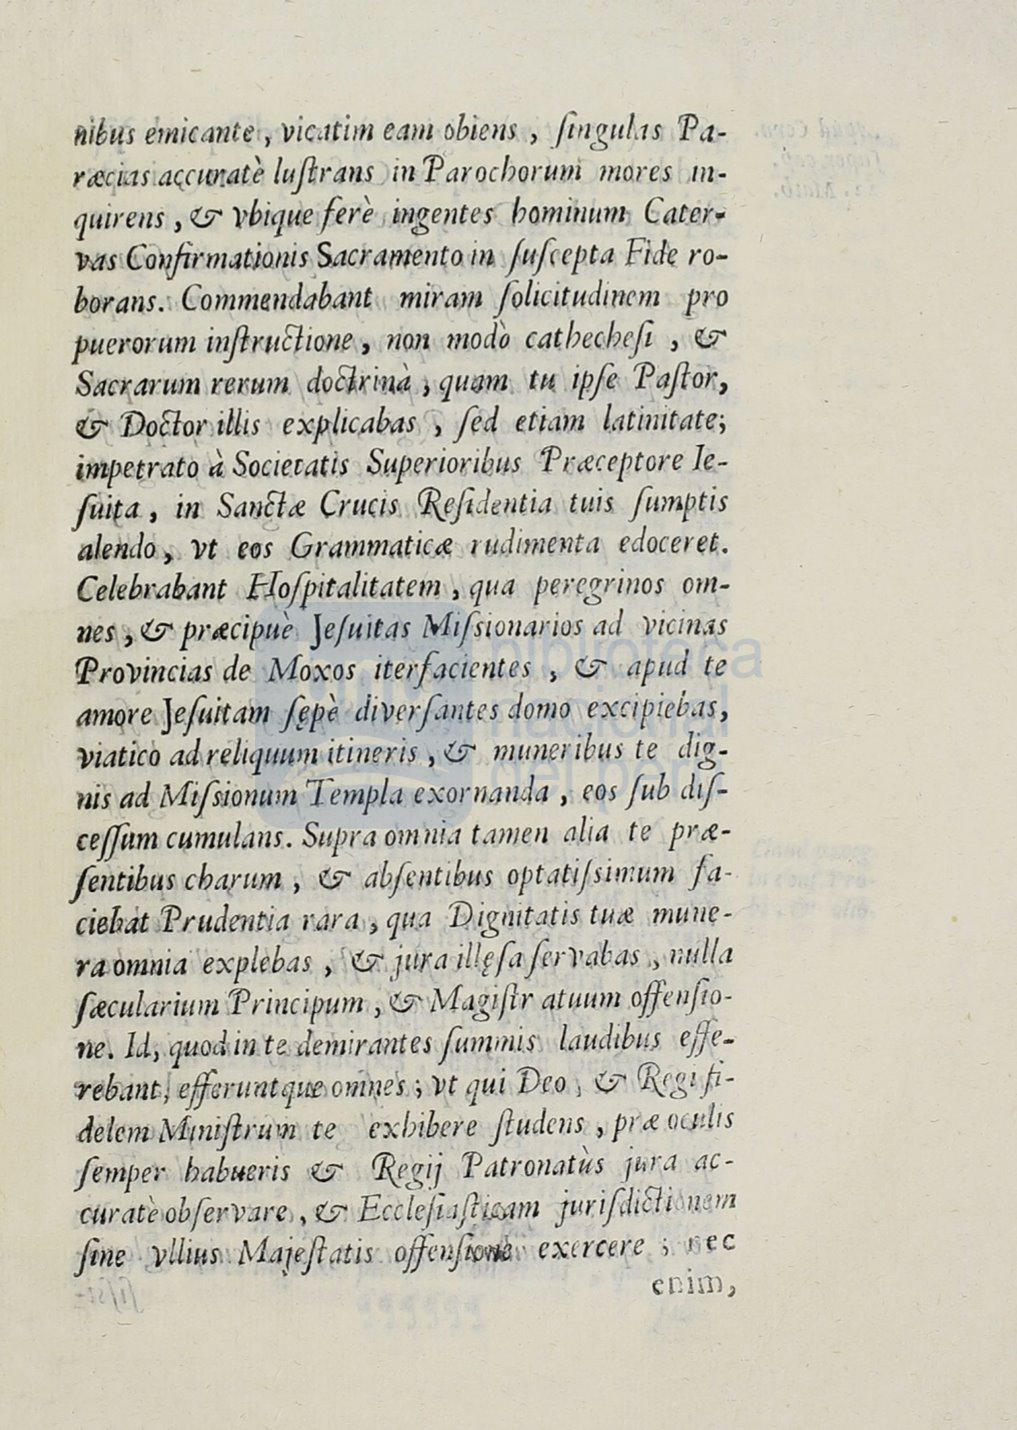 nibus emicante, vicatim eam obiens, ſingulas Pa-
ræcias accuratè luſtrans in Parochorum mores in-
quirens, & vbique ferè ingentes hominum Cater-
vas Confirmationis Sacramento in ſuſcepta Fide ro-
borans. Commendabant miram ſolicitudinem pro
puerorum inſtructione, non modò cathecheſi, &
Sacrarum rerum doctrinà, quam tu ipſe Paſtor,
& Doctor illis explicabas, ſed etiam latinitate;
impetrato à Societatis Superioribus Præceptore Ie-
ſuita, in Sanctæ Crucis Reſidentia tuis ſumptis
alendo, vt eos Grammaticæ rudimenta edoceret.
Celebrabant Hoſpitalitatem, qua peregrinos om-
nes, & præcipuè Jeſuitas Miſsionarios ad vicinas
Provincias de Moxos iterfacientes, & apud te
amore Jeſuitam ſępè diverſantes domo excipiebas,
viatico ad reliquum itineris, & muneribus te dig-
nis ad Miſsionum Templa exornanda, eos ſub diſ-
ceſſum cumulans. Supra omnia tamen alia te præ-
ſentibus charum, & abſentibus optatiſsimum fa-
ciebat Prudentia rara, qua Dignitatis tuæ mune-
ra omnia explebas, & jura illęſa ſervabas, nulla
ſæcularium Principum, & Magiſtr atuum offenſio-
ne. Id, quod in te demirantes ſummis laudibus effe-
rebant, efferuntque omnes; vt qui Deo, & Regi fi-
delem Miniſtrum te exhibere ſtudens, præ oculis
ſemper habueris & Regij Patronatùs jura ac-
curatè obſervare, & Eccleſiaſticam juriſdictionem
ſine vllius Majeſtatis offenſione exercere; nec
enim,
biblioteca
nacional
del perú